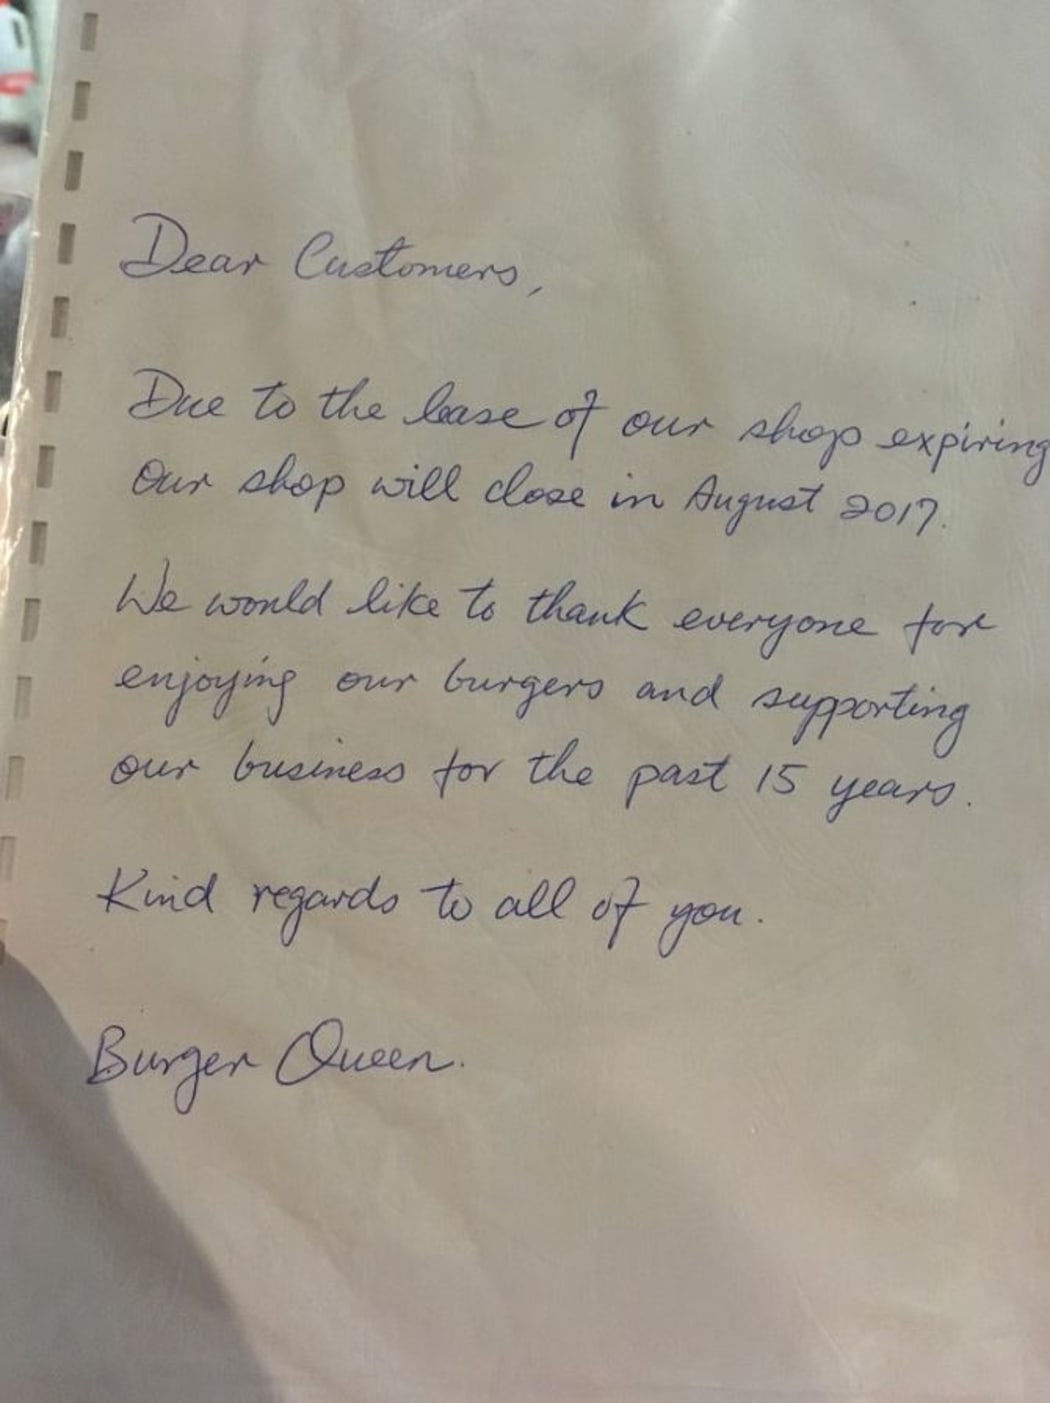 Dear Customers,
Due to the lease of our shop expiring
our shop will close in August 2017.
We would like to thank everyone for
enjoying our burgers and supporting
our business for the past 15 years.
Kind regards to all of you.
Burger Queen.